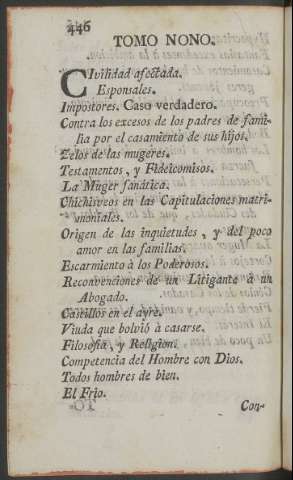 446
TOMO NONO.
CIvilidad afectada.
Esponsales.
Impostores. Caso verdadero.
Contra los excesos de los padres de fami-
lia por el casamiento de sus hijos.
Zelos de las mugeres.
Testamentos, y Fideicomisos.
La Muger fanática.
Chichisveos en las Capitulaciones matri-
moniales.
Origen de las inquietudes, y del poco
amor en las familias.
Escarmiento à los Poderosos.
Reconvenciones de un Litigante à un
Abogado.
Castillos en el ayre.
Viuda que bolviò à casarse.
Filosofia, y Religion.
Competencia del Hombre con Dios.
Todos hombres de bien.
El Frio.
Con-